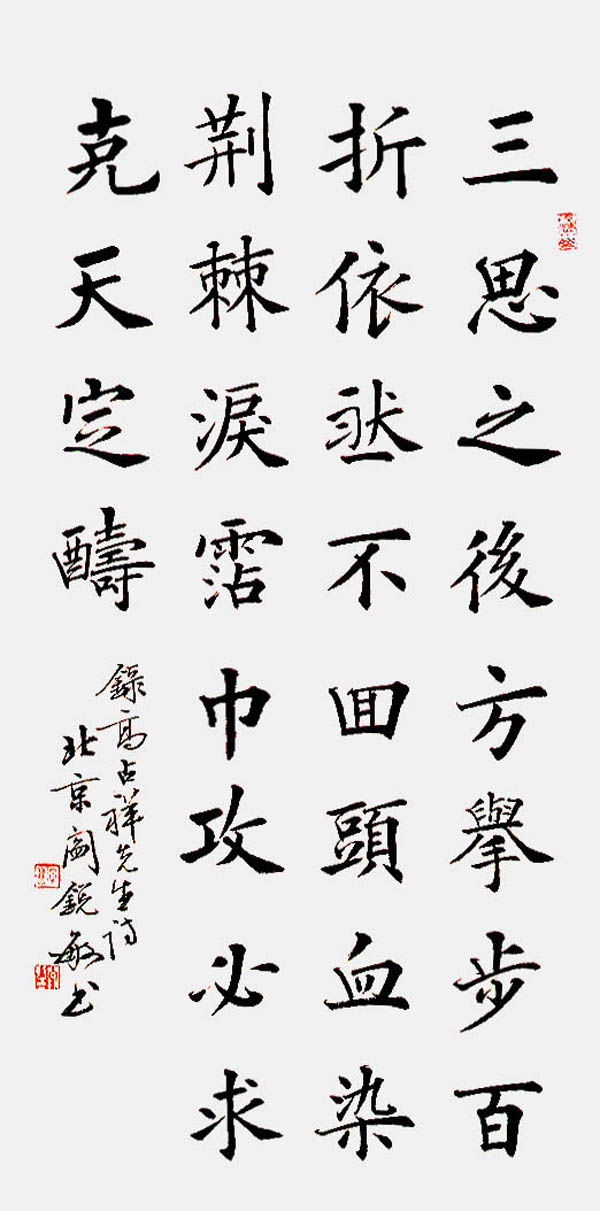 三思之後方舉步百
折依然不回頭血染
荆棘淚霑巾攻必求
克天定疇
錄高占祥先生詩
北京閻銳敏书